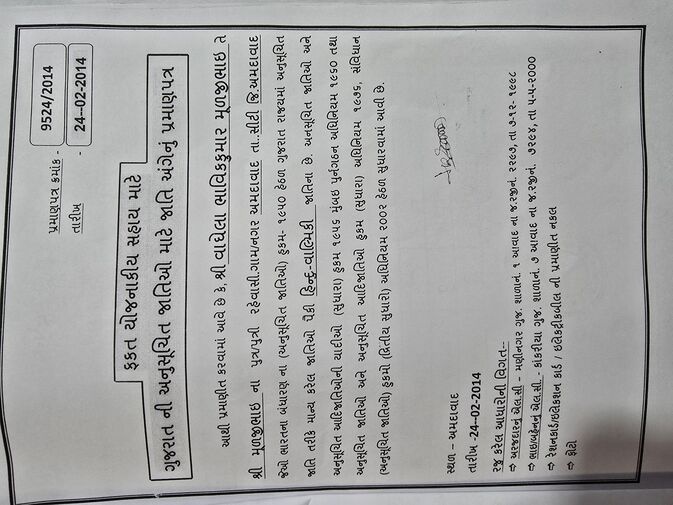 પ્રમાણપત્ર ક્રમાંક - 9524/2014
તારીખ - 24--02-2014
ફક્ત યોજનાકીય સહાય માટે
ગુજરાત ની અનુસૂચિત જાતિઓ માટે જાતિ અંગેનું પ્રમાણપત્ર
આથી પ્રમાણીત કરવામાં આવે છે કે, શ્રી વાઘેલા ભાવિકકુમાર મૂળજીભાઇ તે
શ્રી મૂળજીભાઇ ના પુત્ર/પુત્રી રહેવાસી.ગામ/નગર અમદાવાદ તા..સીટી જિ.અમદાવાદ
જેઓ ભારતના બંધારણ ના (અનુસૂચિત જાતિઓ) હુકમ- ૧૯૫૦ હેઠળ ગુજરાત રાજ્યમાં અનુસૂચિત
જાતિ તરીકે માન્ય કરેલ જાતિઓ પૈકી હિન્દુ-વાલ્મિકી જાતિના છે. અનુસૂચિત જાતિઓ અને
અનુસૂચિત આદિજાતિઓની યાદીઓ (સુધારા) હુકમ ૧૯૫૬ મુંબઇ પુર્નગઠન અધિનિયમ ૧૯૬૦ તથા
અનુસૂચિત જાતિઓ અને અનુસૂચિત આદિજાતિઓ હુકમ (સુધારા) અધિનિયમ ૧૯૭૬, સંવિધાન
(અનુસૂચિત જાતિઓ) હુકમો (દ્વિતીય સુધારો) અધિનિયમ ૨૦૦૨ હેઠળ સુધારવામાં આવી છે.
સ્થળ – અમદાવાદ
તારીખ -24-02-2014
રજુ કરેલ આધારોની વિગત--
⇨ અરજદારનું એલ.સી – મણીનગર ગુજ. શાળાનં. ૧ આવાદ ના જ.રજીનં. ૨૨૯૭, તા ૭-૧૨- ૧૯૯૮
⇨ ભાઇબહેનનું એલ.સી.- કાંકરીયા ગુજ. શાળાનં. ૭ આવાદ ના જ.રજીનં. ૭૨૯૪, તા ૫-૫-૨૦૦૦
⇨ રેશનકાર્ડ/ઇલેકશન કાર્ડ / ઇલેકટ્રીકબીલ ની પ્રમાણીત નકલ
⇨ ફોટો